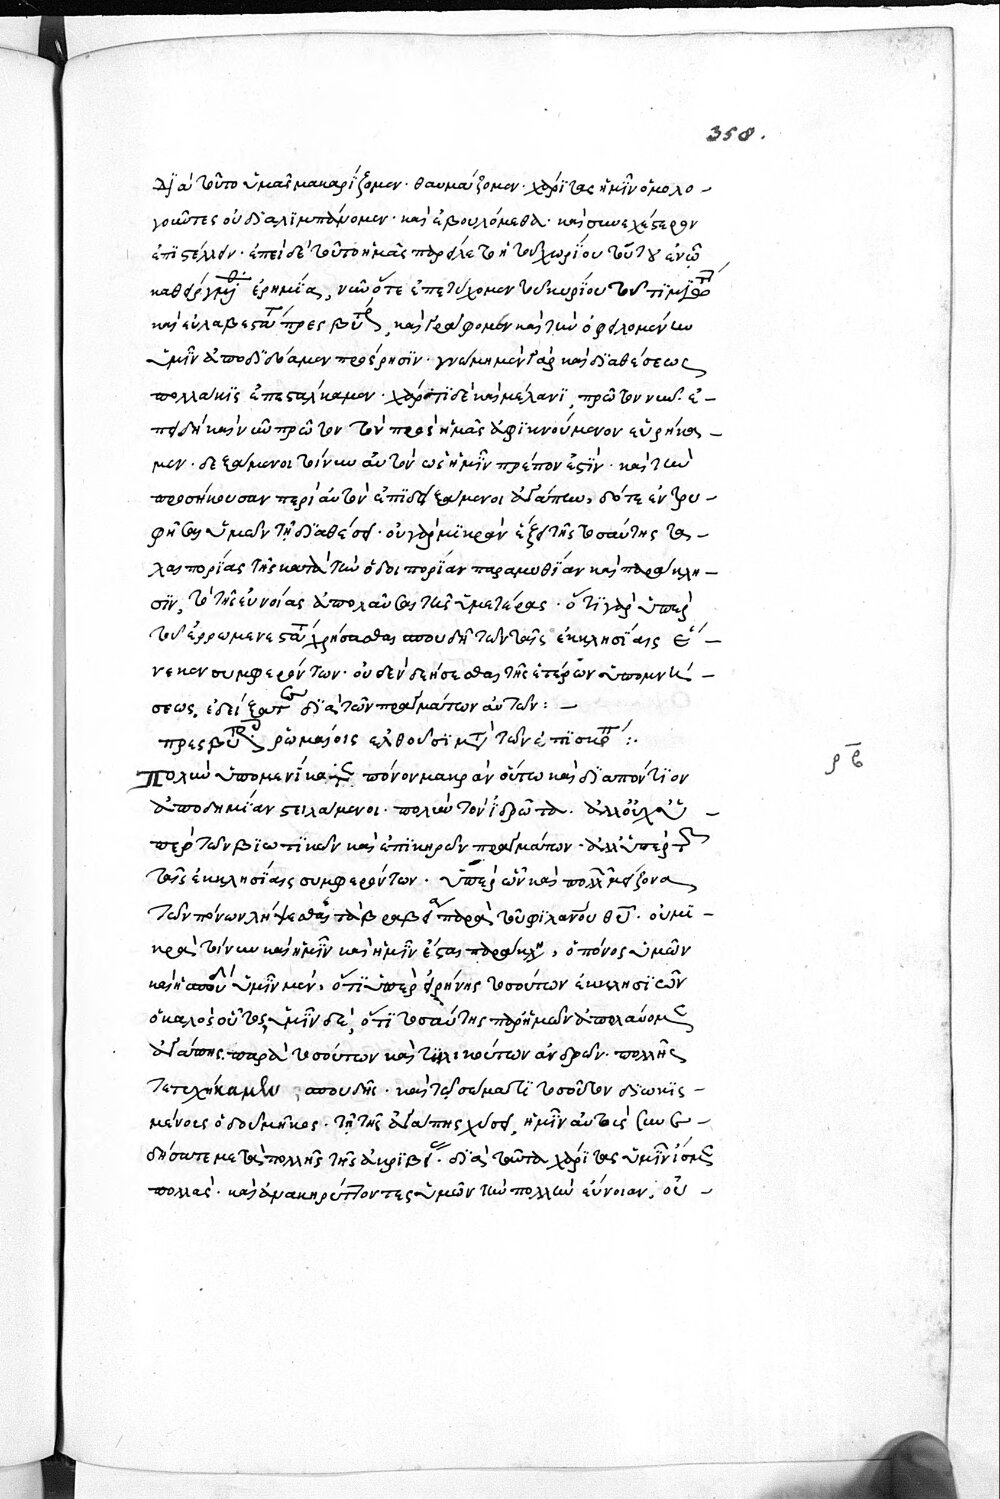 358.
Διὰ τοῦτο ὑμᾶς μακαρίζομεν· θαυμάζομεν· χάριτας ἡμῖν ὁμολο-
γοῦντες οὐ διαλιμπάνομεν· καὶ ἐβουλόμεθα· καὶ συνεχέστερον
ἐπιστέλλειν· ἐπεὶ δὲ τοῦτο ἡμᾶς παρείλετο ἡ τοῦ χωρίου τούτου ἐν ᾧ
καθείργμεθα ἐρημία, νῦν ὅτε ἐπετύχομεν τοῦ κυρίου τοῦ τιμιωτ
καὶ εὐλαβεστ πρεσβυτ, καὶ γράφομεν καὶ τὴν ὀφειλομένην
ὑμῖν ἀποδίδομεν πρόσρησιν· γνώμη μὲν γὰρ καὶ διαθέσεως
πολλάκις ἐπεστάλκαμεν· χάρτη δὲ καὶ μέλανι, πρῶτον νῦν· ἐ-
πειδὴ καὶ νῦν πρῶτον τὸν πρὸς ἡμᾶς ἀφικνούμενον εὑρήκα-
μεν· δεξάμενοι τοίνυν αὐτὸν ὡς ἡμῖν πρέπον ἐστὶν· καὶ τὴν
προσήκουσαν περὶ αὐτὸν ἐπιδειξάμενοι ἀγάπην, δότε ἐντρυ-
φῆσαι ὑμῶν τῇ διαθέσει· οὐ γὰρ μικρὰν ἕξει τῆς τοσαύτης τα-
λαιπορίας τῆς κατὰ τὴν ὁδοιπορίαν παραμυθίαν καὶ παράκλη-
σιν, τὸ τῆς εὐνοίας ἀπολαῦσαι τῆς ὑμετέρας· ὅτι γὰρ ὑπὲρ
τοῦ ἐρρωμενεστ χρήσασθαι σπουδῇ τῶν ταῖς ἐκκλησίαις ἕ-
νεκεν συμφερόντων· οὐδὲν δεήσεσθαι τῆς ἑτέρων ὑπομνή-
σεως, ἐδείξατε διὰ τῶν πραγμάτων αὐτῶν:-
πρεσβυτ ῥωμαίοις ἐλθοῦσι μετὰ τῶν ἐπισκόπ:·
ρξ
Πολὺν ὑπομεμενήκατε πόνον μακρὰν οὕτω καὶ διαπόντιον
ἀποδημίαν στειλάμενοι· πολὺν τὸν ἱδρῶτα· ἀλλ' οὐχ ὑ-
πὲρ τῶν βιωτικῶν καὶ ἐπικήρων πραγμάτων· ἀλλ' ὑπὲρ τ
ταῖς ἐκκλησίαις συμφερόντων· ὑπὲρ ὧν καὶ πολλῷ μείζονα
τῶν πόνων λήψεσθαι τὰ βραβεῖα παρὰ τοῦ φιλανου θυ· οὐ μι-
κρὰ τοίνυν καὶ ἡμῖν καὶ ὑμῖν ἔσται παράκλη, ὁ πόνος ὑμῶν
καὶ ἡ σπουδὴ ὑμῖν μὲν, ὅτι ὑπὲρ εἰρήνης τοσούτων ἐκκλησιῶν
ὁ καλὸς οὗτος, ἡμῖν δὲ, ὅτι τοσαύτης παρ' ἡμῶν ἀπολαύομεν
ἀγάπης παρὰ τοσούτων καὶ τηλικούτων ἀνδρῶν· πολλῆς
τετυχήκαμεν σπουδῆς· καὶ τῷ σώματι τοσοῦτον διωκισ-
μένοις ὁδοῦ μῆκος· τῇ τῆς ἀγάπης χύσει, ἡμῖν αὐτοὺς συνε-
δήσατε μετὰ πολλῆς τῆς ἀκριβεί· διὰ ταῦτα χάριτας ὑμῖν ἴσμεν
πολλάς· καὶ ἀνακηρύττοντες ὑμῶν τὴν πολλὴν εὔνοιαν, οὐ-